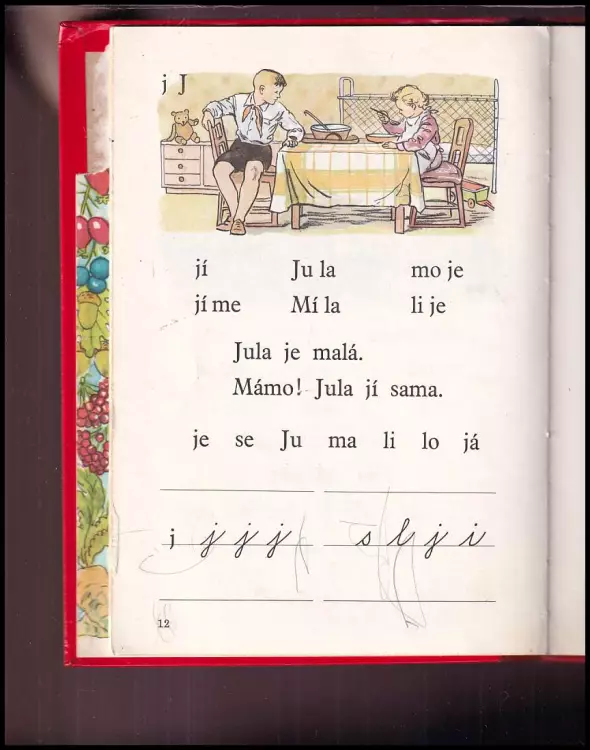 j J
jí Ju la mo je
jí me Mí la li je
Jula je malá.
Mámo! Jula jí sama.
je se Ju ma li lo já
j j j j s l j i
12